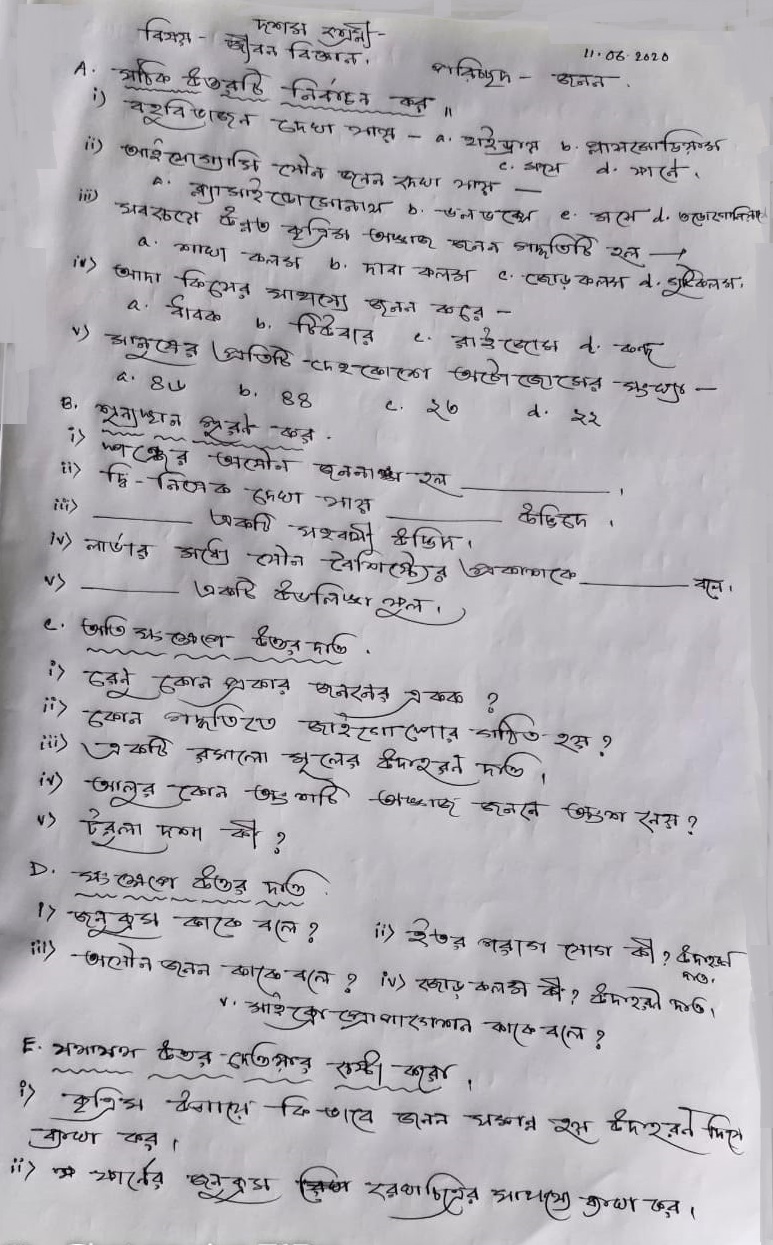 দশম শ্রেণী-
বিষয় - জীবন বিজ্ঞান.
11.06.2020
পরিচ্ছেদ - জনন.
A. সঠিক উত্তরটি নির্বাচন কর ॥
i) বহুবিভাজন দেখা যায় - a. হাইড্রায় b. প্লাসমোডিয়াম
c. মসে d. ফার্নে.
ii) আইসোগ্যামি যৌন জনন দেখা যায় —
a. ক্ল্যামাইডোমোনাস b. ভলভক্সে c. মসে d.
iii) সবচেয়ে উন্নত কৃত্রিম অঙ্গজ জনন পদ্ধতিটি হল →
a. শাখা কলম b. দাবা কলম c. জোড় কলম d. গুটিকলম.
iv) আদা কিসের সাহায্যে জনন করে -
a. ধাবক b. টিউবার c. রাইজোম d. কন্দ
v) মানুষের প্রতিটি দেহকোশে অটোজোমের সংখ্যা —
a. 8৬ b. 88 c. ২৩ d. ২২
B. শূন্যস্থান পূরণ কর.
i) মসের অযৌন জননাঙ্গ হল ______ ।
ii) দ্বি-নিষেক দেখা যায় ______ উদ্ভিদে ।
iii) ______ একটি সহবাসী উদ্ভিদ।
iv) লার্ভার মধ্যে যৌন বৈশিষ্ট্যের প্রকাশকে ______ বলে।
v) ______ একটি উভলিঙ্গ ফুল।
C. অতি সংক্ষেপে উত্তর দাও.
i) রেনু কোন প্রকার জননের একক ?
ii) কোন পদ্ধতিতে জাইগোস্পোর গঠিত হয় ?
iii) একটি রসালো মূলের উদাহরণ দাও।
iv) আলুর কোন অংশটি অঙ্গজ জননে অংশ নেয় ?
v) টরুলা দশা কী ?
D. সংক্ষেপে উত্তর দাও
i) জনুক্রম কাকে বলে ? ii) ইতর পরাগ যোগ কী ? উদাহরণ
দাও.
iii) অযৌন জনন কাকে বলে ? iv) জোড় কলম কী ? উদাহরণ দাও।
v. মাইক্রোপ্রোপাগেশন কাকে বলে ?
E. যথাযথ উত্তর দেওয়ার চেষ্টা করো।
i) কৃত্রিম উপায়ে কি ভাবে জনন সম্পন্ন হয় উদাহরণ দিয়ে
ব্যাখ্যা কর।
ii) ফার্নের জনুক্রম রেখাচিত্রের সাহায্যে ব্যাখ্যা কর।